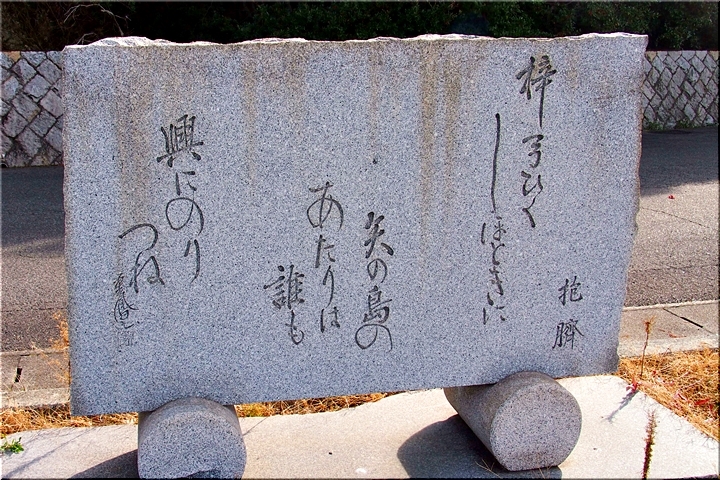 抱臍
梓弓ひく
しほどきに
矢の島の
あたりは
誰も
興にのり
つね